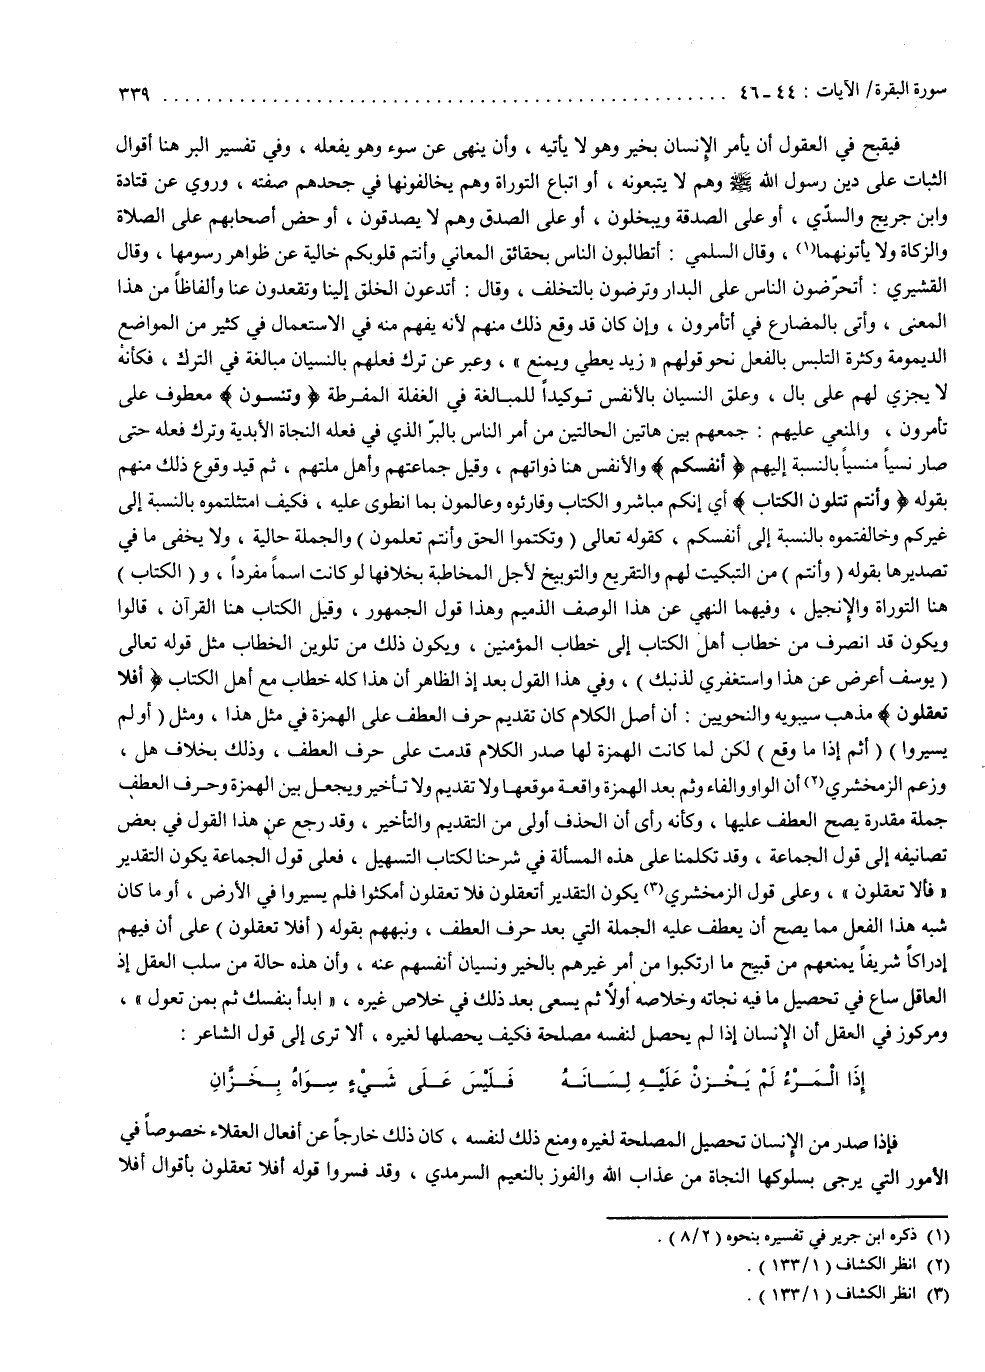 سورة البقرة/ الآيات : ٤٤ ـ ٤٦ ................................................ ٣٣٩
فيقبح في العقول أن يأمر الإنسان بخير وهو لا يأتيه ، وأن ينهى عن سوء وهو يفعله ، وفي تفسير البر هنا أقوال
الثبات على دين رسول الله ﷺ وهم لا يتبعونه ، أو اتباع التوراة وهم يخالفونها في جحدهم صفته ، وروي عن قتادة
وابن جريج والسدّي ، أو على الصدقة ويبخلون ، أو على الصدق وهم لا يصدقون ، أو حض أصحابهم على الصلاة
والزكاة ولا يأتونهما(١) ، وقال السلمي : أتطالبون الناس بحقائق المعاني وأنتم قلوبكم خالية عن ظواهر رسومها ، وقال
القشيري : أتحرّضون الناس على البدار وترضون بالتخلف ، وقال : أتدعون الخلق إلينا وتقعدون عنا وألفاظاً من هذا
المعنى ، وأتى بالمضارع في أتأمرون ، وإن كان قد وقع ذلك منهم لأنه يفهم منه في الاستعمال في كثير من المواضع
الديمومة وكثرة التلبس بالفعل نحو قولهم « زيد يعطي ويمنع » ، وعبر عن ترك فعلهم بالنسيان مبالغة في الترك ، فكأنه
لا يجزي لهم على بال ، وعلق النسيان بالأنفس توكيداً للمبالغة في الغفلة المفرطة ﴿ وتنسون ﴾ معطوف على
تأمرون ، والمنعي عليهم : جمعهم بين هاتين الحالتين من أمر الناس بالبرّ الذي في فعله النجاة الأبدية وترك فعله حتى
صار نسياً منسياً بالنسبة إليهم ﴿ أنفسكم ﴾ والأنفس هنا ذواتهم ، وقيل جماعتهم وأهل ملتهم ، ثم قيد وقوع ذلك منهم
بقوله ﴿ وأنتم تتلون الكتاب ﴾ أي إنكم مباشرو الكتاب وقارئوه وعالمون بما انطوى عليه ، فكيف امتثلتموه بالنسبة إلى
غيركم وخالفتموه بالنسبة إلى أنفسكم ، كقوله تعالى ( وتكتموا الحق وأنتم تعلمون ) والجملة حالية ، ولا يخفى ما في
تصديرها بقوله ( وأنتم ) من التبكيت لهم والتقريع والتوبيخ لأجل المخاطبة بخلافها لو كانت اسماً مفرداً ، و ( الكتاب )
هنا التوراة والإنجيل ، وفيهما النهي عن هذا الوصف الذميم وهذا قول الجمهور ، وقيل الكتاب هنا القرآن ، قالوا
ويكون قد انصرف من خطاب أهل الكتاب إلى خطاب المؤمنين ، ويكون ذلك من تلوين الخطاب مثل قوله تعالى
( يوسف أعرض عن هذا واستغفري لذنبك ) ، وفي هذا القول بعد إذ الظاهر أن هذا كله خطاب مع أهل الكتاب ﴿ أفلا
تعقلون ﴾ مذهب سيبويه والنحويين : أن أصل الكلام كان تقديم حرف العطف على الهمزة في مثل هذا ، ومثل ( أو لم
يسيروا ) ( أثم إذا ما وقع ) لكن لما كانت الهمزة لها صدر الكلام قدمت على حرف العطف ، وذلك بخلاف هل ،
وزعم الزمخشري(٢) أن الواو والفاء وثم بعد الهمزة واقعة موقعها ولا تقديم ولا تأخير ويجعل بين الهمزة وحرف العطف
جملة مقدرة يصح العطف عليها ، وكأنه رأى أن الحذف أولى من التقديم والتأخير ، وقد رجع عن هذا القول في بعض
تصانيفه إلى قول الجماعة ، وقد تكلمنا على هذه المسألة في شرحنا لكتاب التسهيل ، فعلى قول الجماعة يكون التقدير
« فألا تعقلون » ، وعلى قول الزمخشري(٣) يكون التقدير أتعقلون فلا تعقلون أمكثوا فلم يسيروا في الأرض ، أو ما كان
شبه هذا الفعل مما يصح أن يعطف عليه الجملة التي بعد حرف العطف ، ونبههم بقوله ( أفلا تعقلون ) على أن فيهم
إدراكاً شريفاً يمنعهم من قبيح ما ارتكبوا من أمر غيرهم بالخير ونسيان أنفسهم عنه ، وأن هذه حالة من سلب العقل إذ
العاقل ساع في تحصيل ما فيه نجاته وخلاصه أولاً ثم يسعى بعد ذلك في خلاص غيره ، « ابدأ بنفسك ثم بمن تعول » ،
ومركوز في العقل أن الإنسان إذا لم يحصل لنفسه مصلحة فكيف يحصلها لغيره ، ألا ترى إلى قول الشاعر :
إِذَا الْمَرْءُ لَمْ يَخْزِنْ عَلَيْهِ لِسَانَهُ فَلَيْسَ عَلَى شَيْءٍ سِوَاهُ بِخَزَّانِ
فإذا صدر من الإنسان تحصيل المصلحة لغيره ومنع ذلك لنفسه ، كان ذلك خارجاً عن أفعال العقلاء خصوصاً في
الأمور التي يرجى بسلوكها النجاة من عذاب الله والفوز بالنعيم السرمدي ، وقد فسروا قوله أفلا تعقلون بأقوال أفلا
(١) ذكره ابن جرير في تفسيره بنحوه ( ٢/ ٨ ) .
(٢) انظر الكشاف ( ١/ ١٣٣ ) .
(٣) انظر الكشاف ( ١/ ١٣٣ ) .